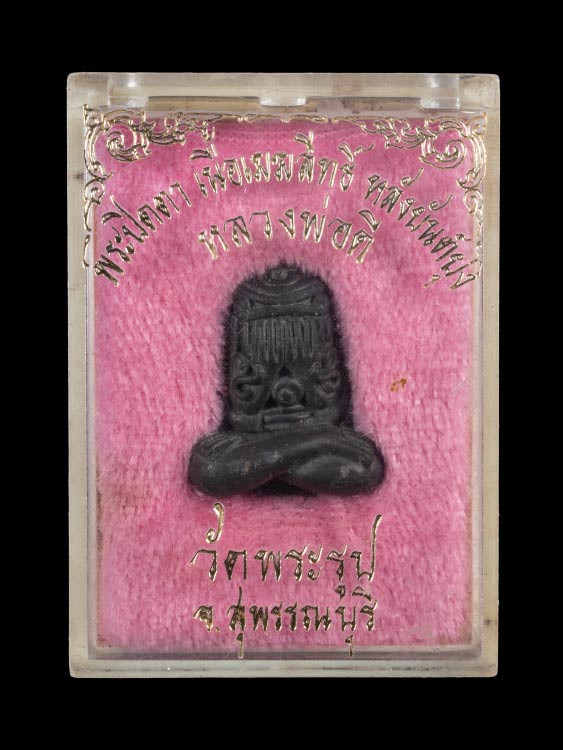 พระปิดตา เนื้อเมฆสิทธิ์ หลังยันต์ยุ่ง
หลวงพ่อดี
วัดพระรูป
จ.สุพรรณบุรี